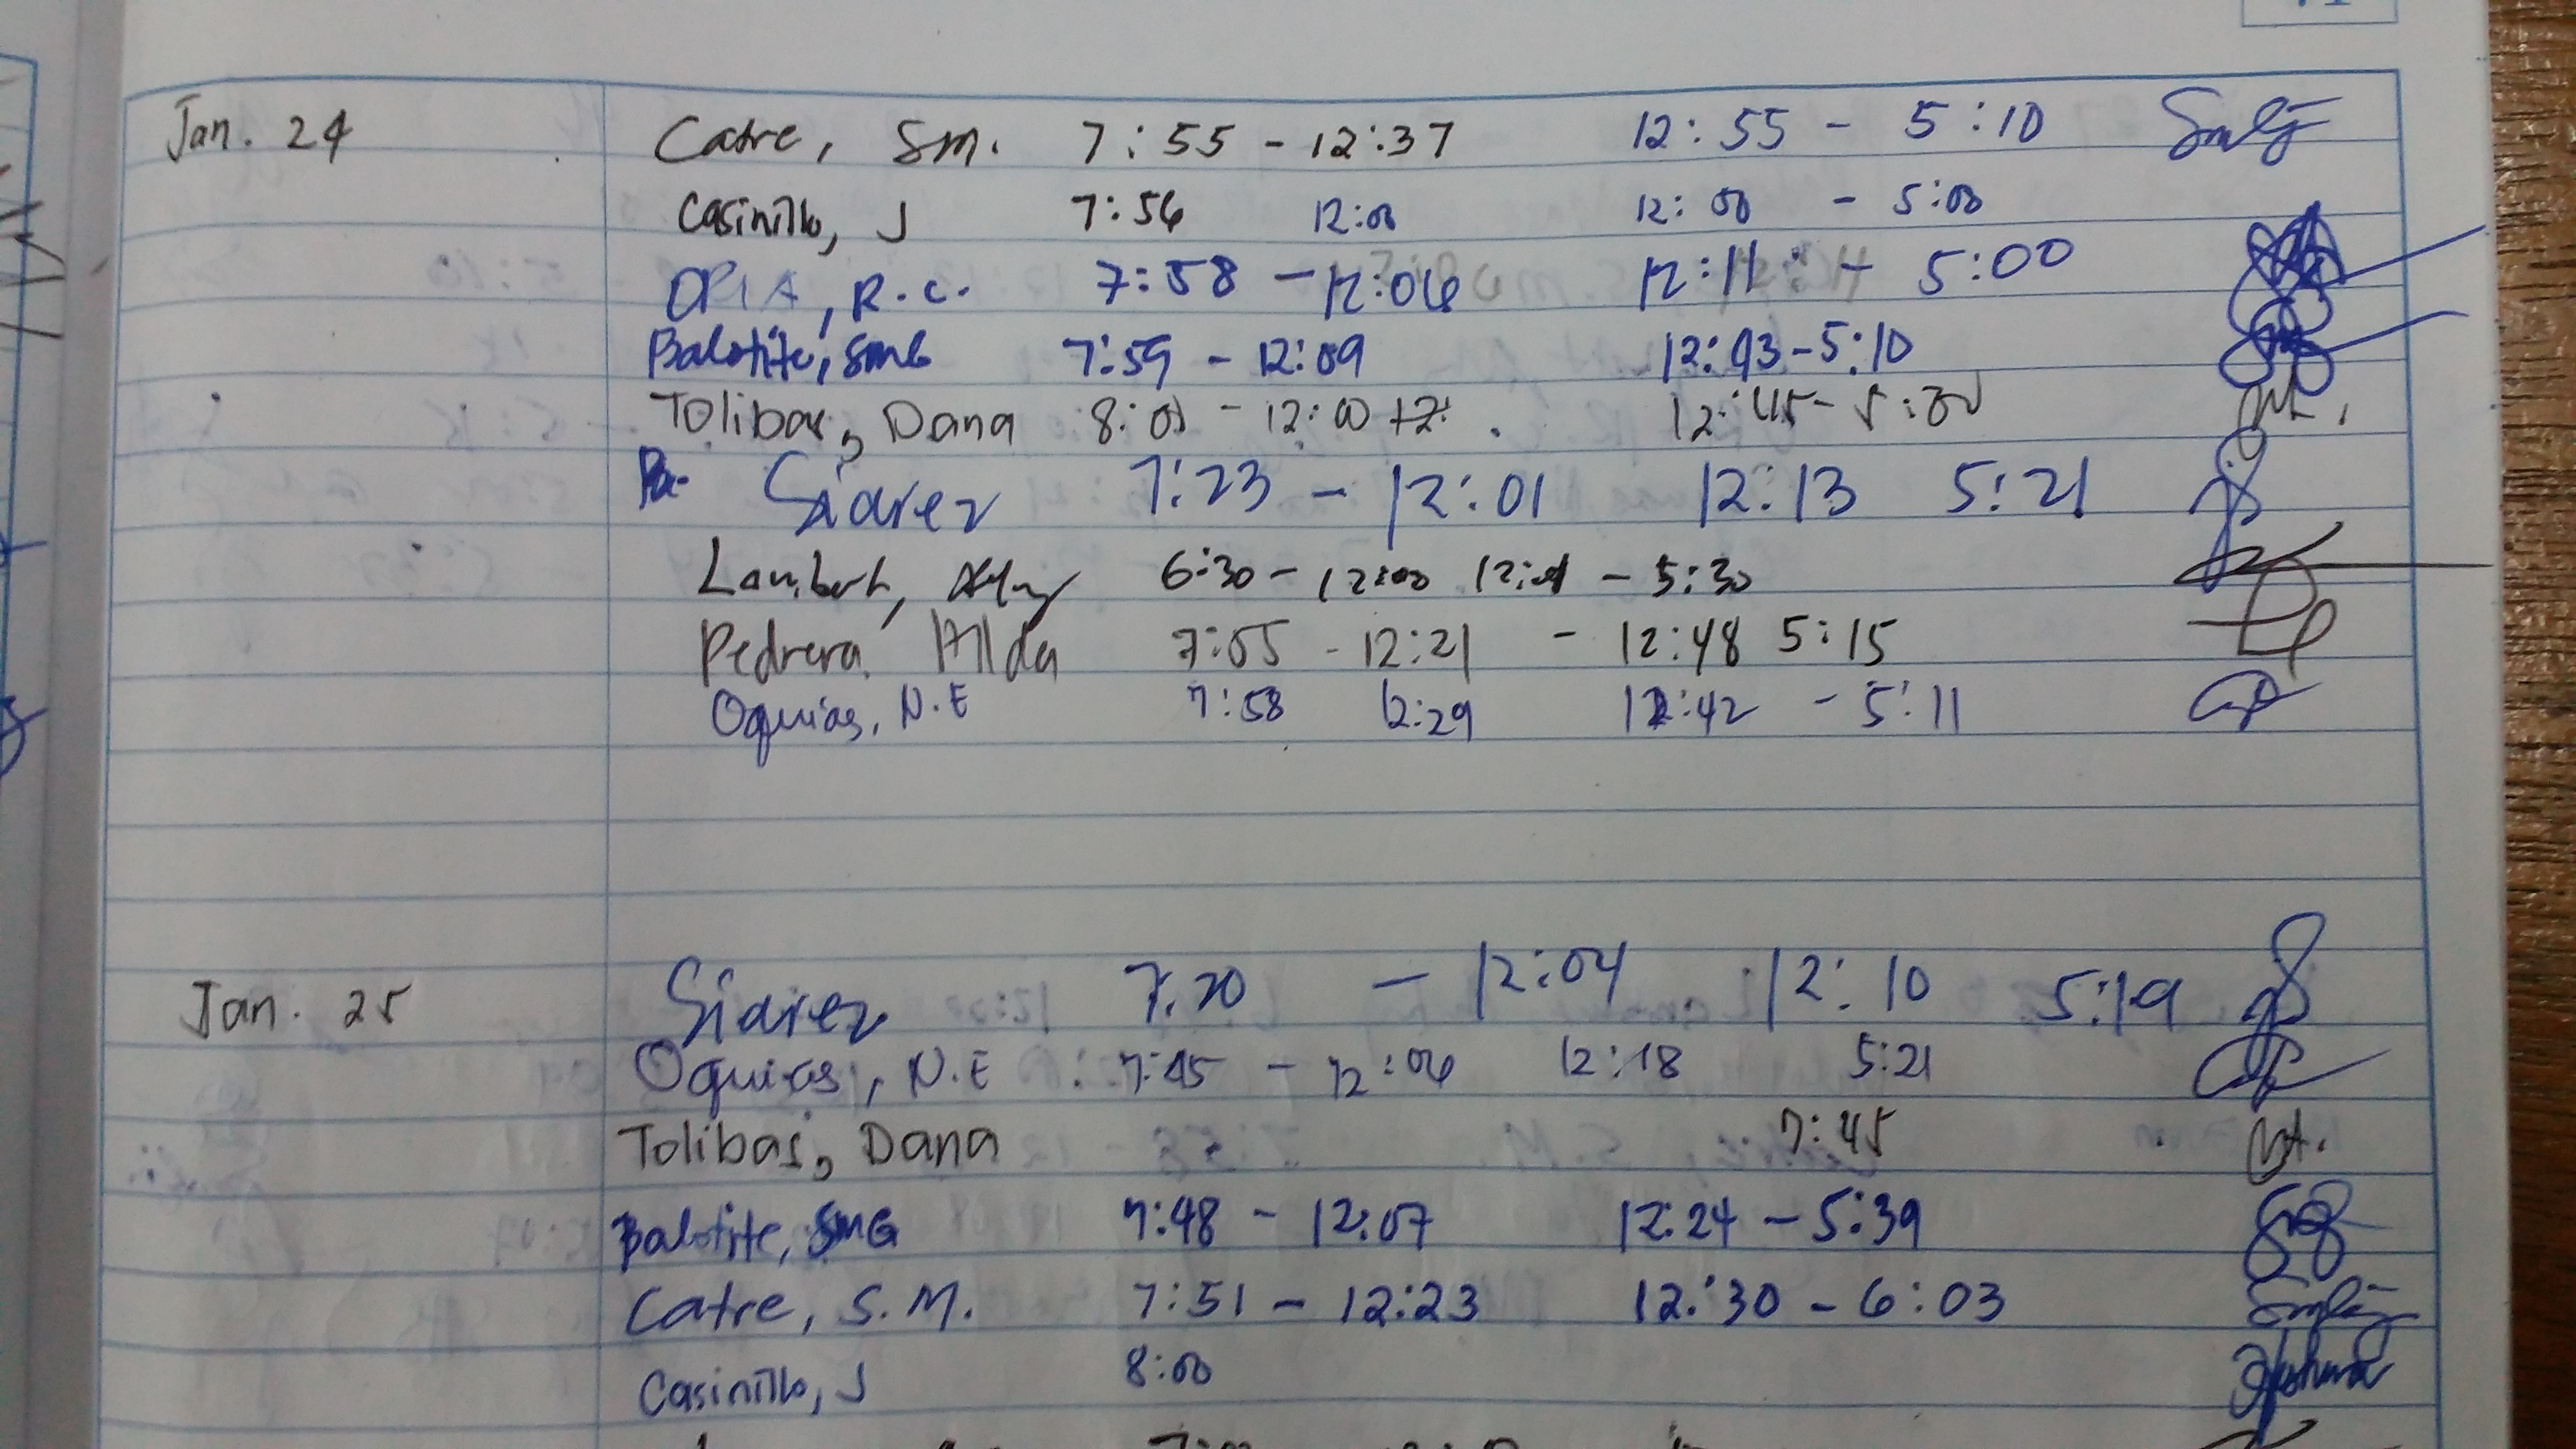 Jan. 24 Catre, Sm. 7:55 - 12:37 12:55 - 5:10
Casinillo, J 7:56 12:00 12:00 - 5:00
OPIA, R.C. 7:58 - 12:06 12:11 - 5:00
Balotite, SMG 7:59 - 12:09 12:43 - 5:10
Tolibas, Dana 8:01 - 12:00 12:45 - 5:30
Siarez 7:23 - 12:01 12:13 5:21
Lambert, 6:30 - 12:00 12:01 - 5:30
Pedrera Alda 7:55 - 12:21 - 12:48 5:15
Oquias, N.E 7:58 12:29 12:42 - 5:11
Jan. 25 Siarez 7:20 - 12:04 12:10 5:19
Oquias, N.E 7:45 - 12:06 12:18 5:21
Tolibas, Dana 7:45
Balotite, SMG 7:48 - 12:07 12:24 - 5:39
Catre, S.M. 7:51 - 12:23 12:30 - 6:03
Casinillo, J 8:00